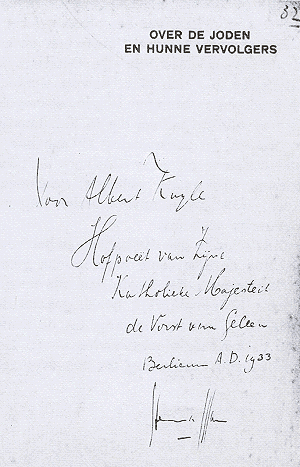 82
OVER DE JODEN
EN HUNNE VERVOLGERS
Voor Albert Kuyle
Hofpoëet van Zijne
Katholieke Majesteit
de Vorst van Geleen
A.D. 1933